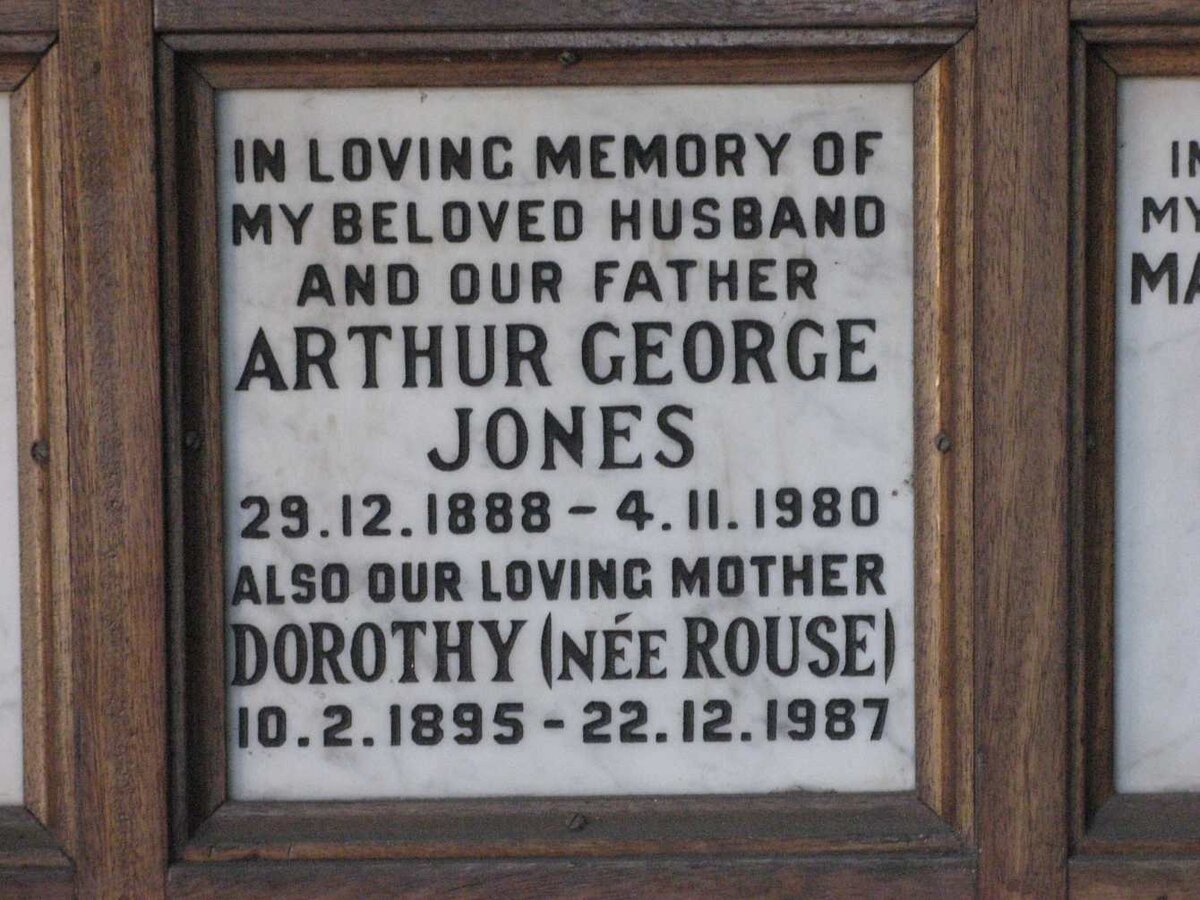 IN LOVING MEMORY OF
MY BELOVED HUSBAND
AND OUR FATHER
ARTHUR GEORGE
JONES
29.12.1888 – 4.11.1980
ALSO OUR LOVING MOTHER
DOROTHY (NÉE ROUSE)
10.2.1895 – 22.12.1987
MY